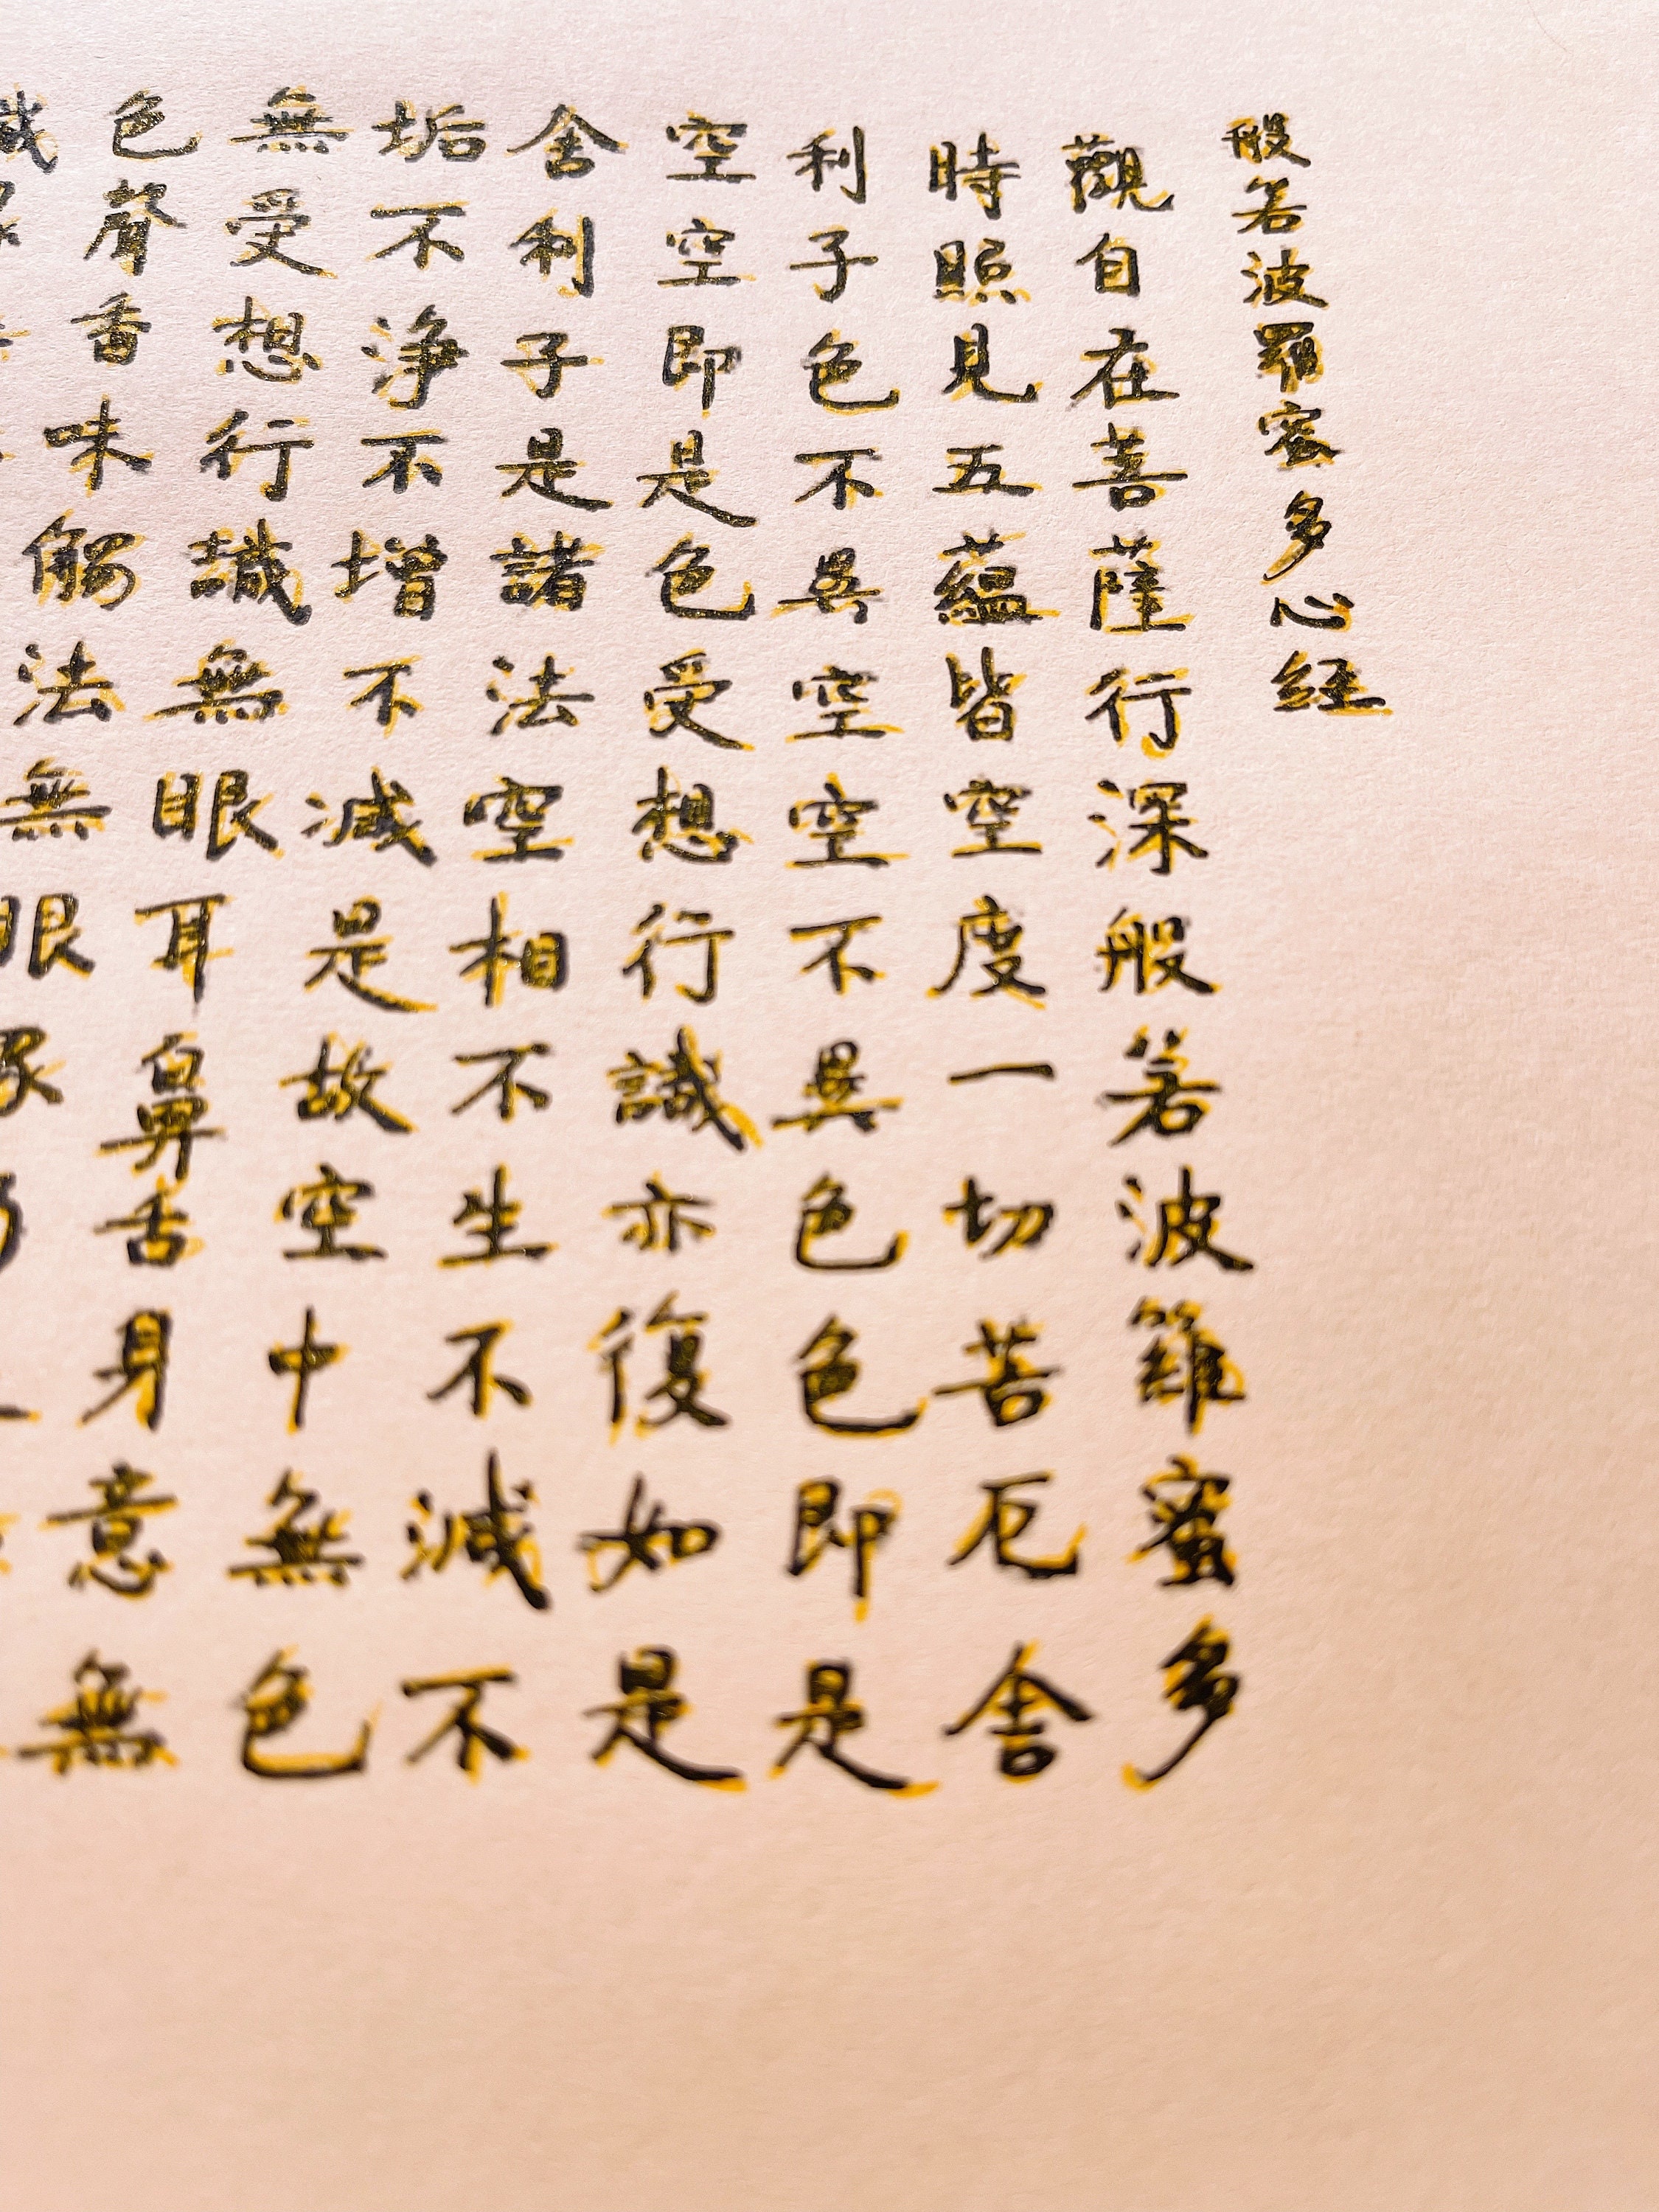 般若波羅蜜多心経
觀自在菩薩行深般若波羅蜜多
時照見五蘊皆空度一切苦厄舍
利子色不異空空不異色色即是
空空即是色受想行識亦復如是
舍利子是諸法空相不生不滅不
垢不淨不增不減是故空中無色
無受想行識無眼耳鼻舌身意無
色聲香味觸法無眼